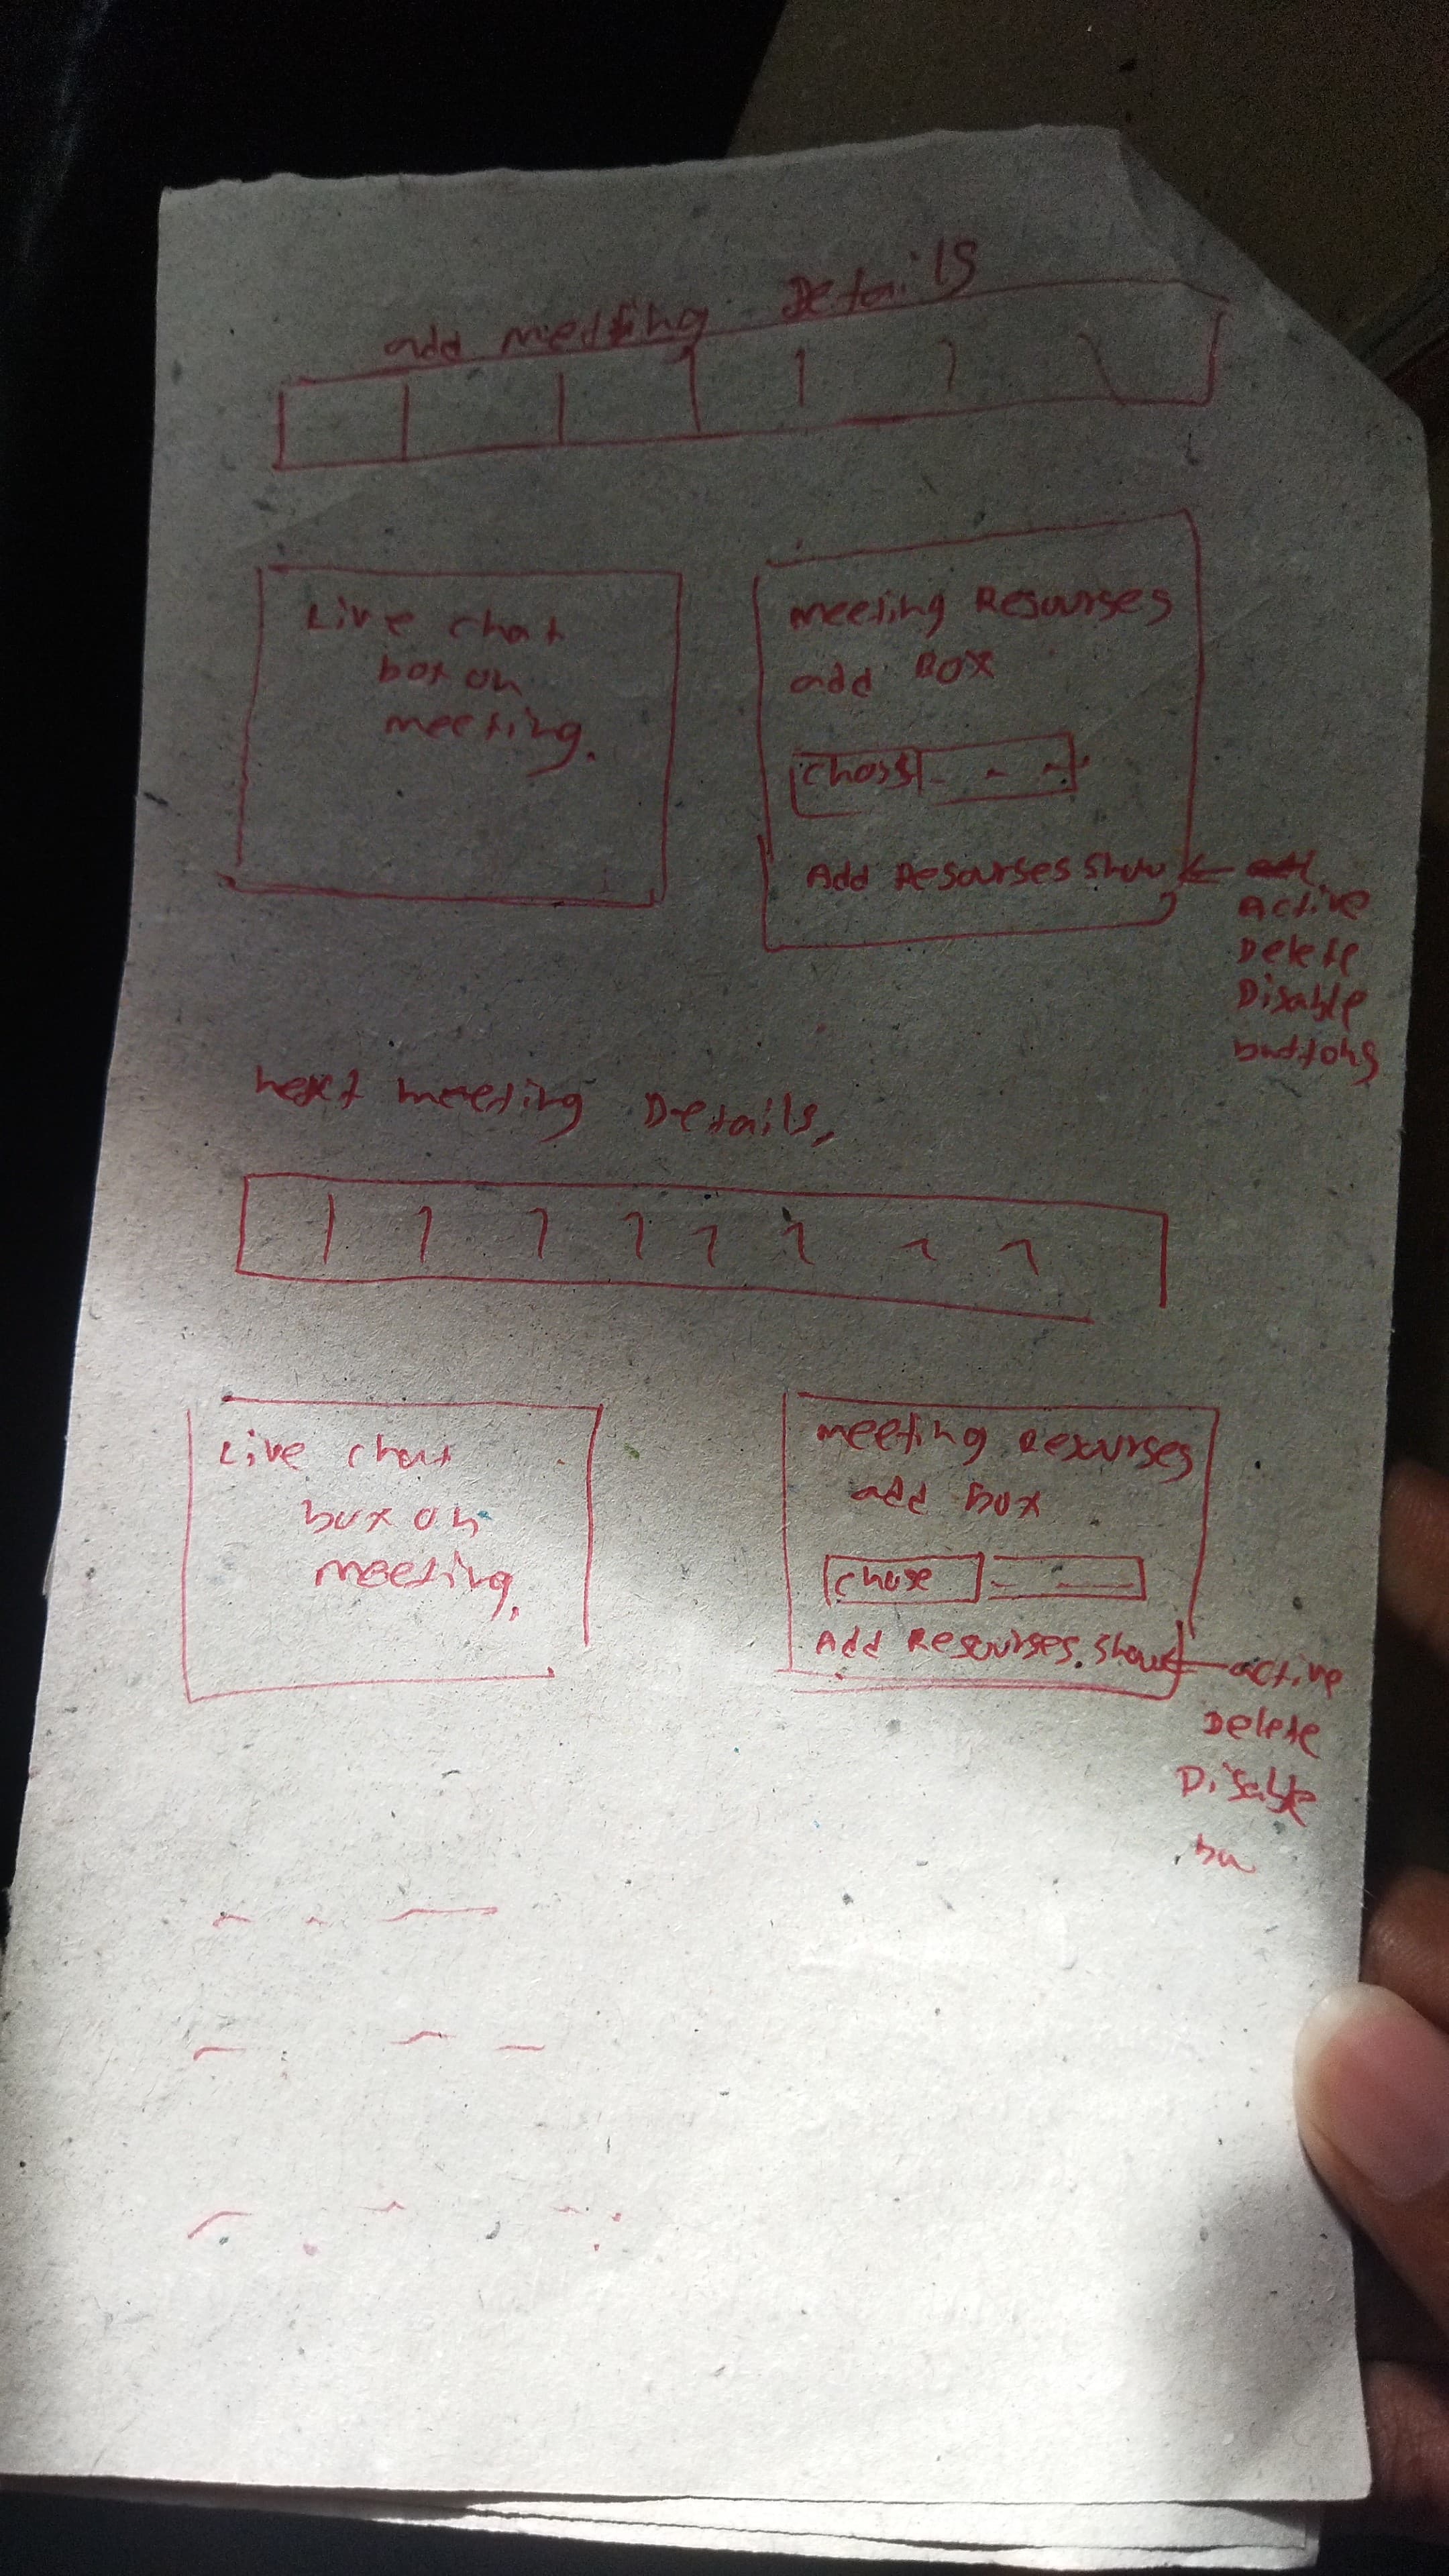 add meeting Details
Live chat
box on
meeting.
meeting Resourses
add Box
Add Resourses Show
Active
Delete
Disable
buttons
next meeting Details,
Live chat
box on
meeting.
meeting Resourses
add Box
chose
Add Resourses. Show
active
Delete
Disable
bu